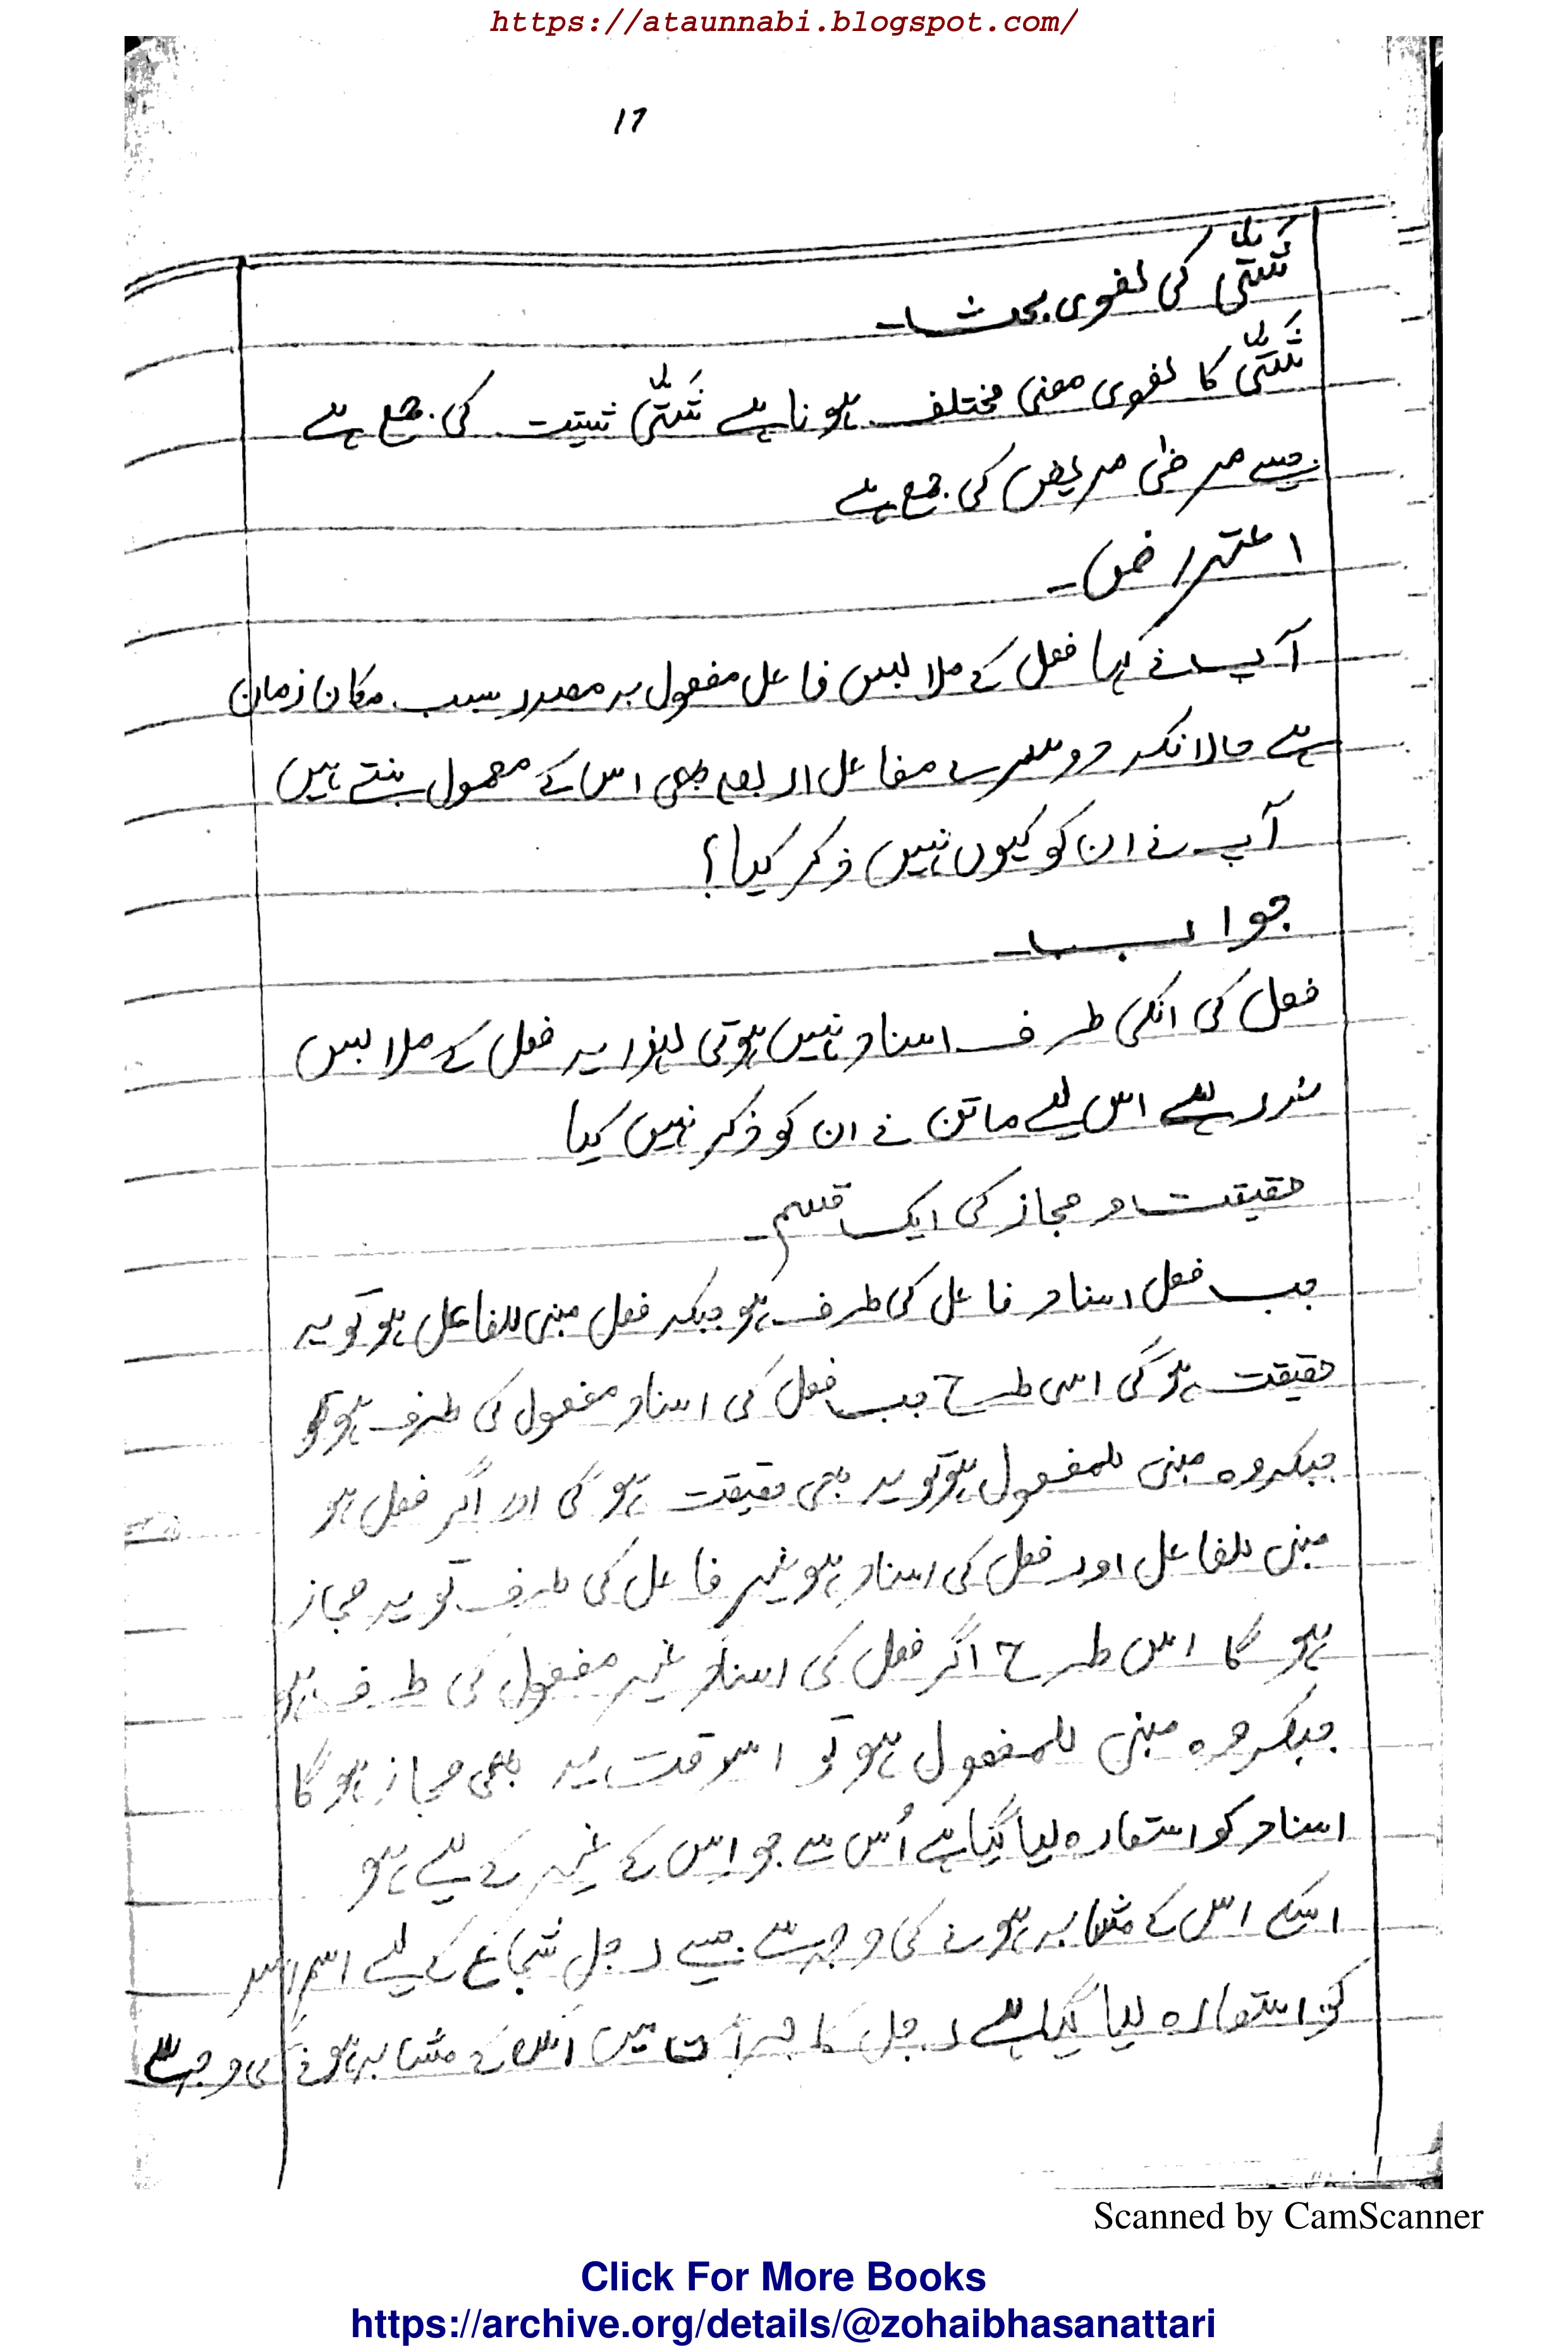 https://ataunnabi.blogspot.com/
17
شَتّٰی کی لغوی بحث۔
شَتّٰی کا لغوی معنی مختلف ہونا ہے شَتّٰی شتیت کی جمع ہے
جیسے مرضٰی مریض کی جمع ہے
اعتراض۔
آپ نے کہا فعل کے ملابس فاعل مفعول بہ مصدر سبب مکان زمان
ہے حالانکہ دوسرے مفاعل اربعہ بھی اس کے معمول بنتے ہیں
آپ نے ان کو کیوں نہیں ذکر کیا؟
جواب۔
فعل کی انکی طرف اسناد نہیں ہوتی لہٰذا یہ فعل کے ملابس
نہ رہے اس لیے ماتن نے ان کو ذکر نہیں کیا
حقیقت و مجاز کی ایک قسم۔
جب فعل اسناد فاعل کی طرف ہو جبکہ فعل مبنی للفاعل ہو تو یہ
حقیقت ہو گی اسی طرح جب فعل کی اسناد مفعول کی طرف ہو تو
جبکہ وہ مبنی للمفعول ہو تو یہ بھی حقیقت ہو گی اور اگر فعل ہو
مبنی للفاعل اور فعل کی اسناد ہو غیر فاعل کی طرف تو یہ مجاز
ہو گا اس طرح اگر فعل کی اسناد غیر مفعول کی طرف ہو
جبکہ وہ مبنی للمفعول ہو تو اسوقت یہ بھی مجاز ہو گا
اسناد کو استعارہ لیا گیا ہے اُس سے جو اس کے غیر کے لیے ہو
اسکے اس کے مشابہ ہونے کی وجہ سے جیسے رجل شجاع کے لیے اسم اسد
کو استعارہ لیا گیا ہے رجل کا جرأت میں اس کے مشابہ ہونے کی وجہ سے
Scanned by CamScanner
Click For More Books
https://archive.org/details/@zohaibhasanattari